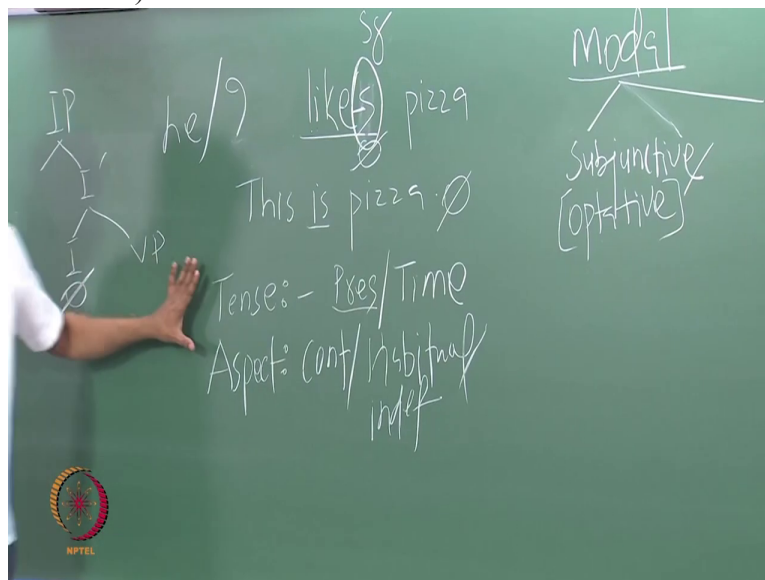 IP
I'
I
VP
∅
sg
he/I likes pizza
∅
This is pizza. ∅
Tense:- Pres/Time
Aspect: Cont/Habitual/
indef
Modal
Subjunctive/
[optative]
NPTEL